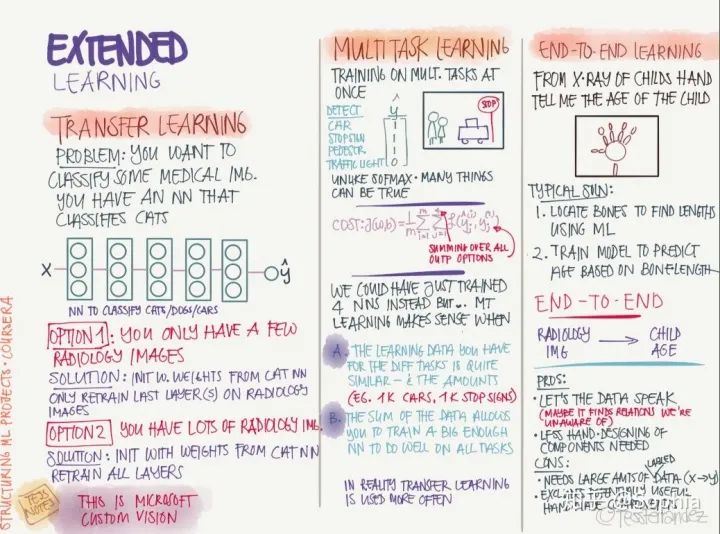 EXTENDED
LEARNING
TRANSFER LEARNING
PROBLEM: YOU WANT TO
CLASSIFY SOME MEDICAL IMG.
YOU HAVE AN NN THAT
CLASSIFIES CATS
X ŷ
NN TO CLASSIFY CATS/DOGS/CARS
OPTION 1: YOU ONLY HAVE A FEW
RADIOLOGY IMAGES
SOLUTION: INIT W. WEIGHTS FROM CAT NN
ONLY RETRAIN LAST LAYER(S) ON RADIOLOGY
IMAGES
OPTION 2 YOU HAVE LOTS OF RADIOLOGY IMG.
SOLUTION: INIT WITH WEIGHTS FROM CAT NN
RETRAIN ALL LAYERS
TESS
NOTE
THIS IS MICROSOFT
CUSTOM VISION
STRUCTURING ML PROJECTS · COURSERA
MULTITASK LEARNING
TRAINING ON MULT. TASKS AT
ONCE
DETECT ŷ
CAR 1
STOPSIGN 1
PEDESTR. 1
TRAFFIC LIGHT 0
STOP
UNLIKE SOFMAX · MANY THINGS
CAN BE TRUE
COST: J(w,b) =
SUMMING OVER ALL
OUTP OPTIONS
WE COULD HAVE JUST TRAINED
4 NNS INSTEAD BUT... MT
LEARNING MAKES SENSE WHEN
A. THE LEARNING DATA YOU HAVE
FOR THE DIFF TASKS IS QUITE
SIMILAR - & THE AMOUNTS
(EG. 1K CARS, 1K STOP SIGNS)
B. THE SUM OF THE DATA ALLOWS
YOU TO TRAIN A BIG ENOUGH
NN TO DO WELL ON ALL TASKS
IN REALITY TRANSFER LEARNING
IS USED MORE OFTEN
END-TO-END LEARNING
FROM X-RAY OF CHILDS HAND
TELL ME THE AGE OF THE CHILD
TYPICAL SOLN:
1. LOCATE BONES TO FIND LENGTHS
USING ML
2. TRAIN MODEL TO PREDICT
AGE BASED ON BONE LENGTH
END-TO-END
RADIOLOGY → CHILD
IMG AGE
PROS:
· LET'S THE DATA SPEAK
(MAYBE IT FINDS RELATIONS WE'RE
UNAWARE OF)
· LESS HAND-DESIGNING OF
COMPONENTS NEEDED
CONS:
LABLED
· NEEDS LARGE AMTS OF DATA (X→Y)
· EXCLUDES POTENTIALLY USEFUL